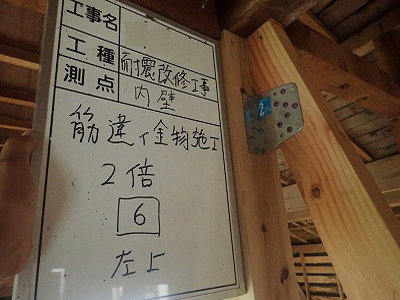 工事名
工種 耐震改修工事
測点 内壁
筋違イ金物施工
2倍
6
左上
2